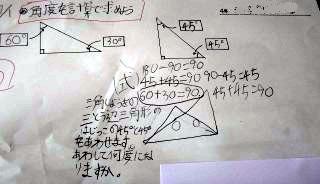 角度を計算で求めよう
60°
30°
45°
45°
(式)
180-90=90
45+45=90
90-45=45
60+30=90
45+45=90
三角じょうぎの
三角形の
はじっこの45°と45°
をあわせます。
あわして何度にな
りますか。